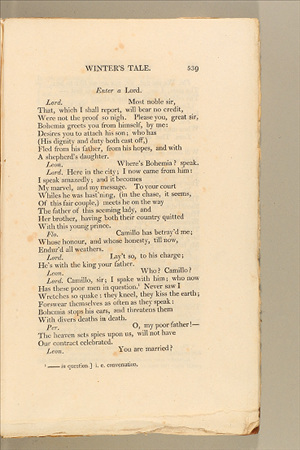 WINTER'S TALE. 539
Enter a Lord.
Lord. Most noble sir,
That, which I shall report, will bear no credit,
Were not the proof so nigh. Please you, great sir,
Bohemia greets you from himself, by me:
Desires you to attach his son; who has
(His dignity and duty both cast off,)
Fled from his father, from his hopes, and with
A shepherd's daughter.
Leon. Where's Bohemia? speak.
Lord. Here in the city; I now came from him:
I speak amazedly; and it becomes
My marvel, and my message. To your court
Whiles he was hast'ning, (in the chase, it seems,
Of this fair couple,) meets he on the way
The father of this seeming lady, and
Her brother, having both their country quitted
With this young prince.
Flo. Camillo has betray'd me;
Whose honour, and whose honesty, till now,
Endur'd all weathers.
Lord. Lay't so, to his charge;
He's with the king your father.
Leon. Who? Camillo?
Lord. Camillo, sir; I spake with him; who now
Has these poor men in question.¹ Never saw I
Wretches so quake: they kneel, they kiss the earth;
Forswear themselves as often as they speak:
Bohemia stops his ears, and threatens them
With divers deaths in death.
Per. O, my poor father!—
The heaven sets spies upon us, will not have
Our contract celebrated.
Leon. You are married?
¹ —— in question] i. e. conversation.